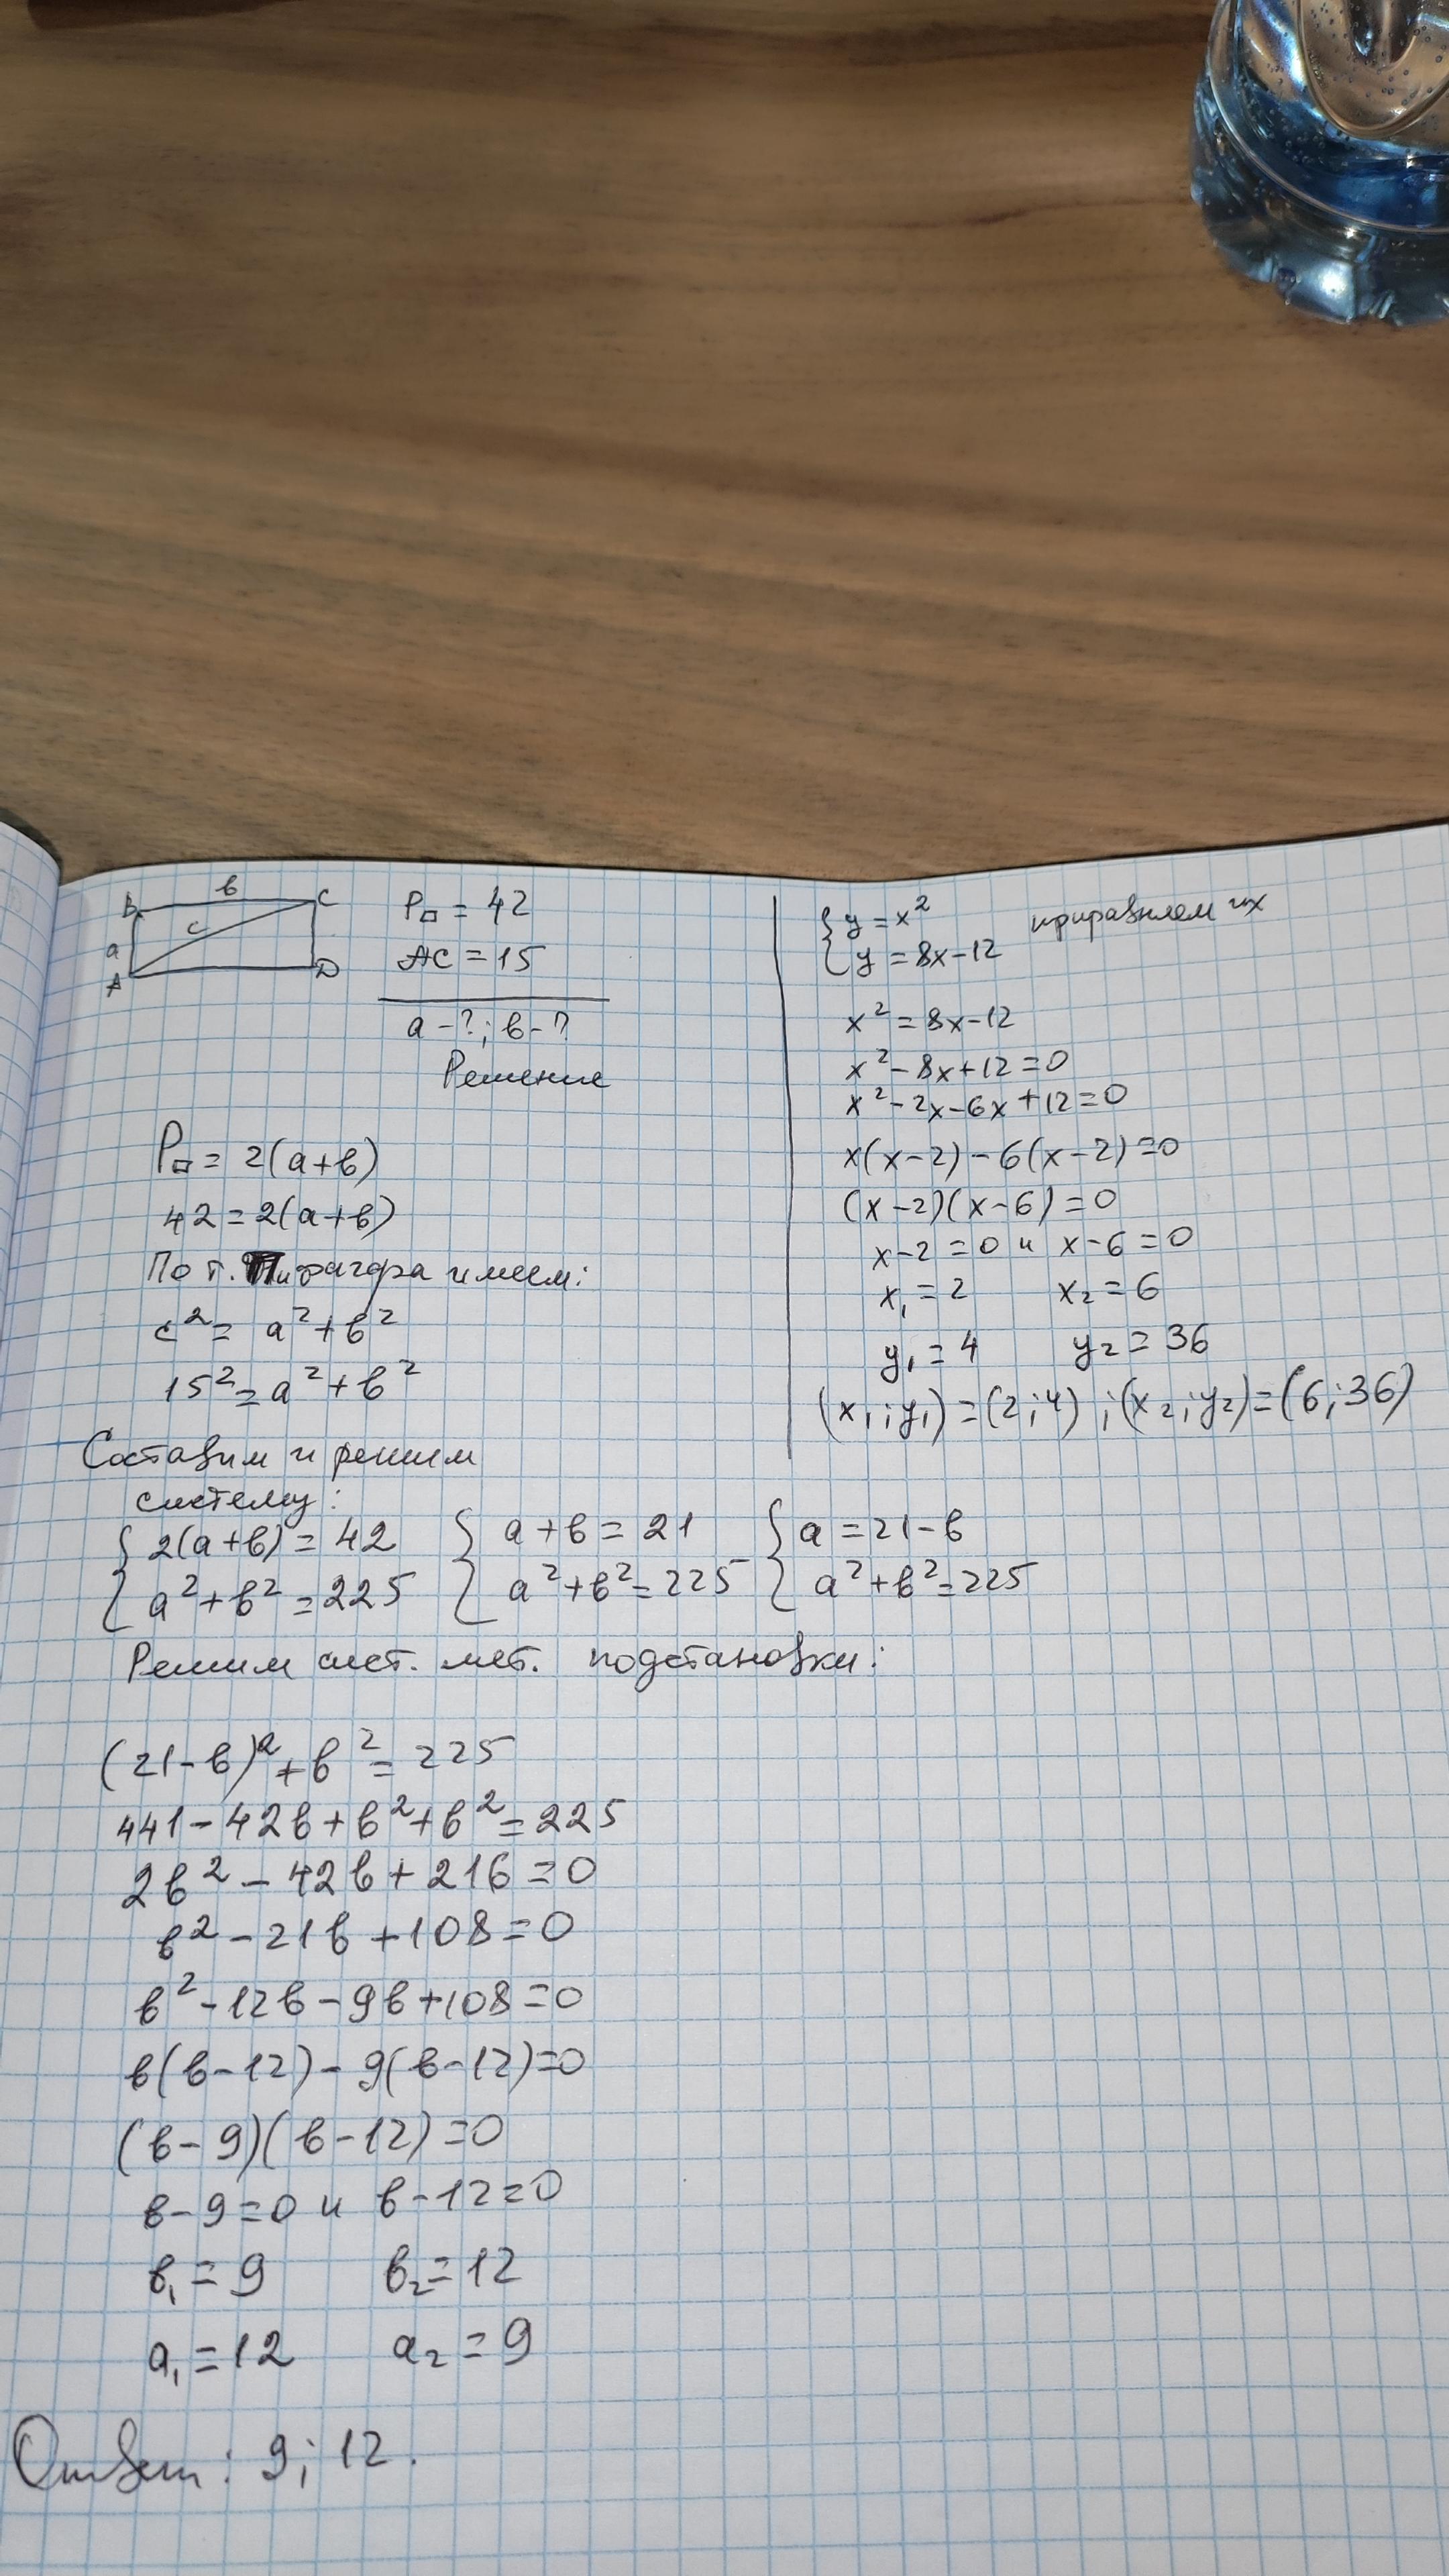 B в C
a c
A D
P□ = 42
AC = 15
a - ?; в - ?
Решение
P□ = 2(a+в)
42 = 2(a+в)
По т. Пифагора имеем:
c² = a²+в²
15² = a²+в²
Составим и решим
систему:
{ 2(a+в) = 42 { a+в = 21 { a = 21-в
{ a²+в² = 225 { a²+в² = 225 { a²+в² = 225
Решим сист. мет. подстановки:
(21-в)²+в² = 225
441-42в+в²+в² = 225
2в²-42в+216 = 0
в²-21в+108 = 0
в²-12в-9в+108 = 0
в(в-12)-9(в-12)=0
(в-9)(в-12)=0
в-9=0 и в-12=0
в₁ = 9 в₂ = 12
a₁ = 12 a₂ = 9
Ответ: 9; 12.
{ y = x² приравняем их
{ y = 8x-12
x² = 8x-12
x²-8x+12=0
x²-2x-6x+12=0
x(x-2)-6(x-2)=0
(x-2)(x-6)=0
x-2=0 и x-6=0
x₁ = 2 x₂ = 6
y₁ = 4 y₂ = 36
(x₁;y₁) = (2;4) ; (x₂;y₂) = (6;36)